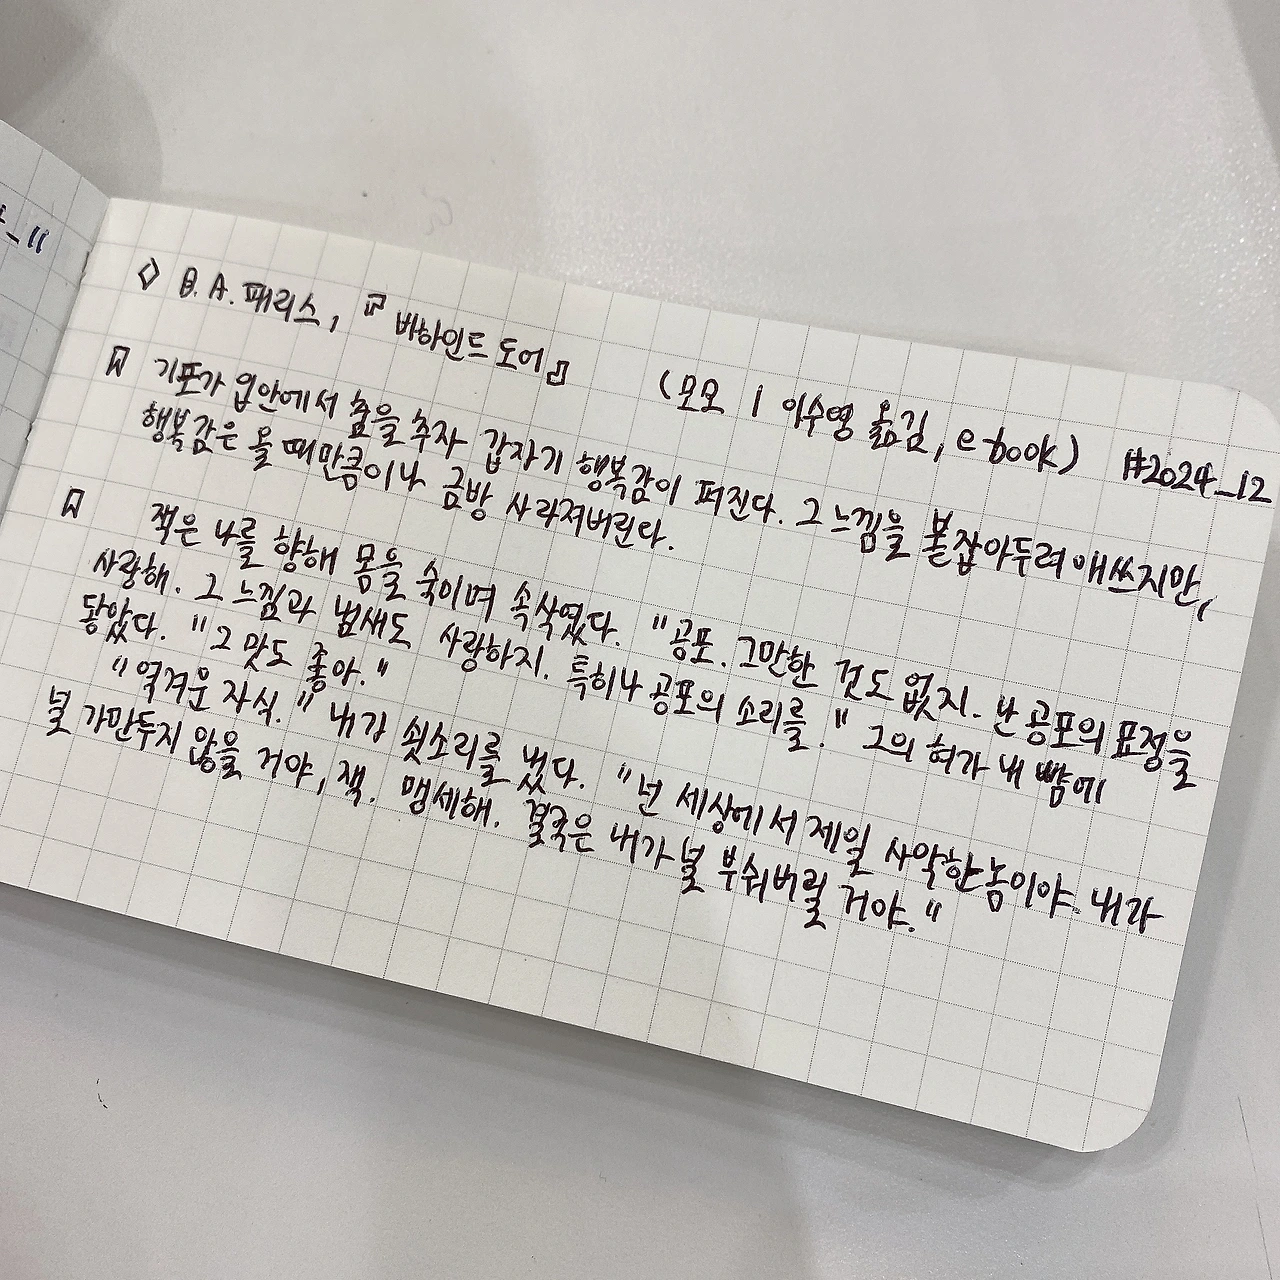 _11
◇ B.A. 패리스, 『비하인드 도어』 (모모 | 이수영 옮김, ebook) #2024_12
기포가 입안에서 춤을 추자 갑자기 행복감이 퍼진다. 그 느낌을 붙잡아두려 애쓰지만,
행복감은 올 때만큼이나 금방 사라져버린다.
잭은 나를 향해 몸을 숙이며 속삭였다. "공포. 그만한 것도 없지. 난 공포의 표정을
사랑해. 그 느낌과 냄새도 사랑하지. 특히나 공포의 소리를." 그의 혀가 내 뺨에
닿았다. "그 맛도 좋아."
"역겨운 자식." 내가 쉿소리를 냈다. "넌 세상에서 제일 사악한 놈이야. 내가
널 가만두지 않을 거야, 잭. 맹세해. 결국은 내가 널 부숴버릴 거야."